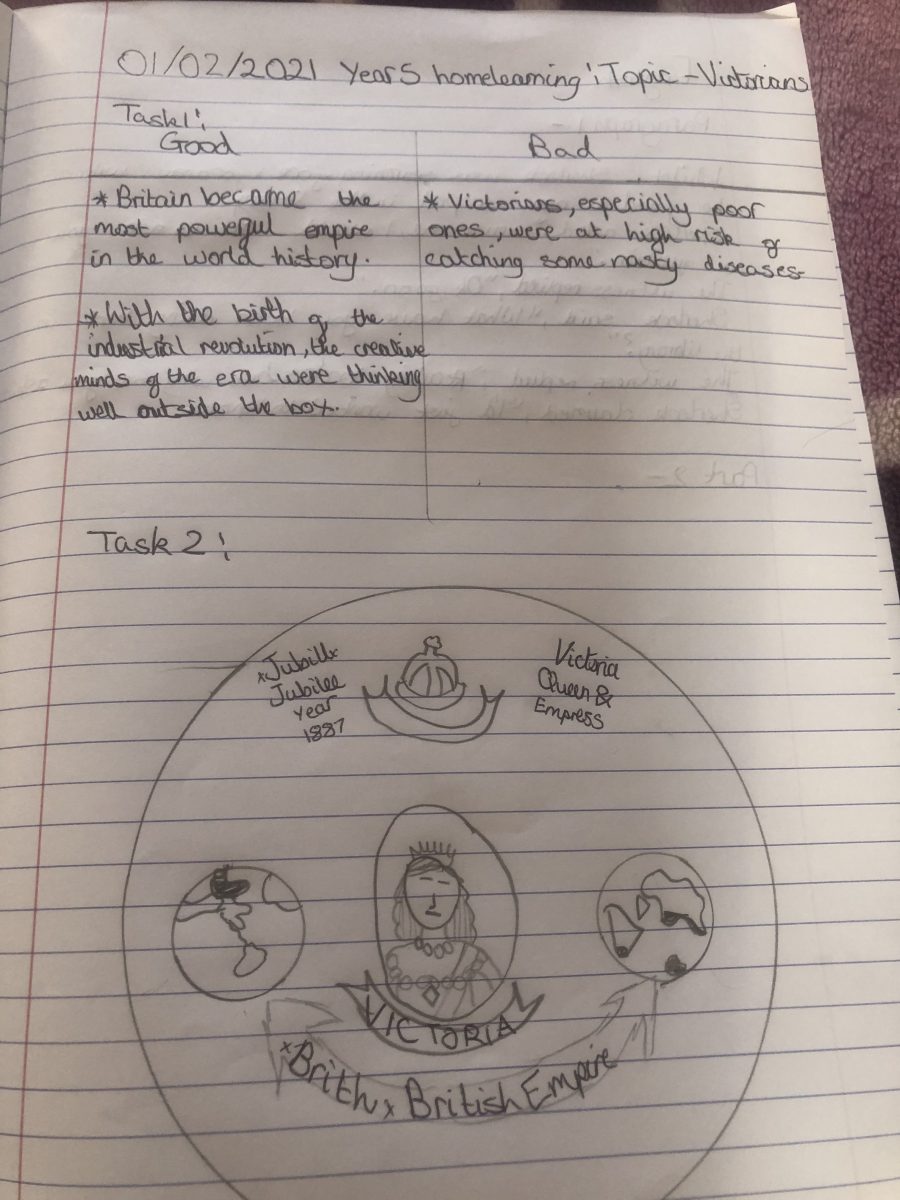 01/02/2021 Year 5 homelearning; Topic - Victorians
Task 1;
Good
Bad
* Britain became the
most powerful empire
in the world history.
* With the birth of the
industrial revolution, the creative
minds of the era were thinking
well outside the box.
* Victorians, especially poor
ones, were at high risk of
catching some nasty diseases
Task 2;
x Jubill x
Jubilee
Year
1887
Victoria
Queen &
Empress
VICTORIA
x Brith x British Empire